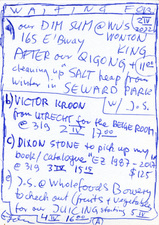 WAITING FOR
a) our DIM SUM @ NWS
165 E' Bway WONTON
KING
AFTER our QIGONG + yes
cleaning up SALT heap from
winter in SEWARD PARK
b) VICTOR KROON W/ J.S.
from UTRECHT for the BEIGE ROOM
@ 319 2 IV 17.00
c) DIXON STONE to pick up my
book/catalogue "EZ 1987-2013
@ 319 3 IV 15 15 $125
d) J.S. @ Wholefoods Bowery
to check out (fruits + vegetables
for our JUICING stating 5 IV
4 IV 16.00